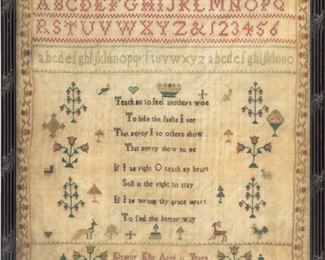 ABCDEFGHIJKLMNOPQ
RSTUVWXYZ&123456
abcdefghijklmnopqrstuvwxyz abcdefghijklmno
Teach me to feel anothers woe
To hide the faults I see
That mercy I to others show
That mercy show to me
If I am right O teach my heart
Still in the right to stay
If I am wrong thy grace impart
To find the better way
Eleanor Aged 11 Years